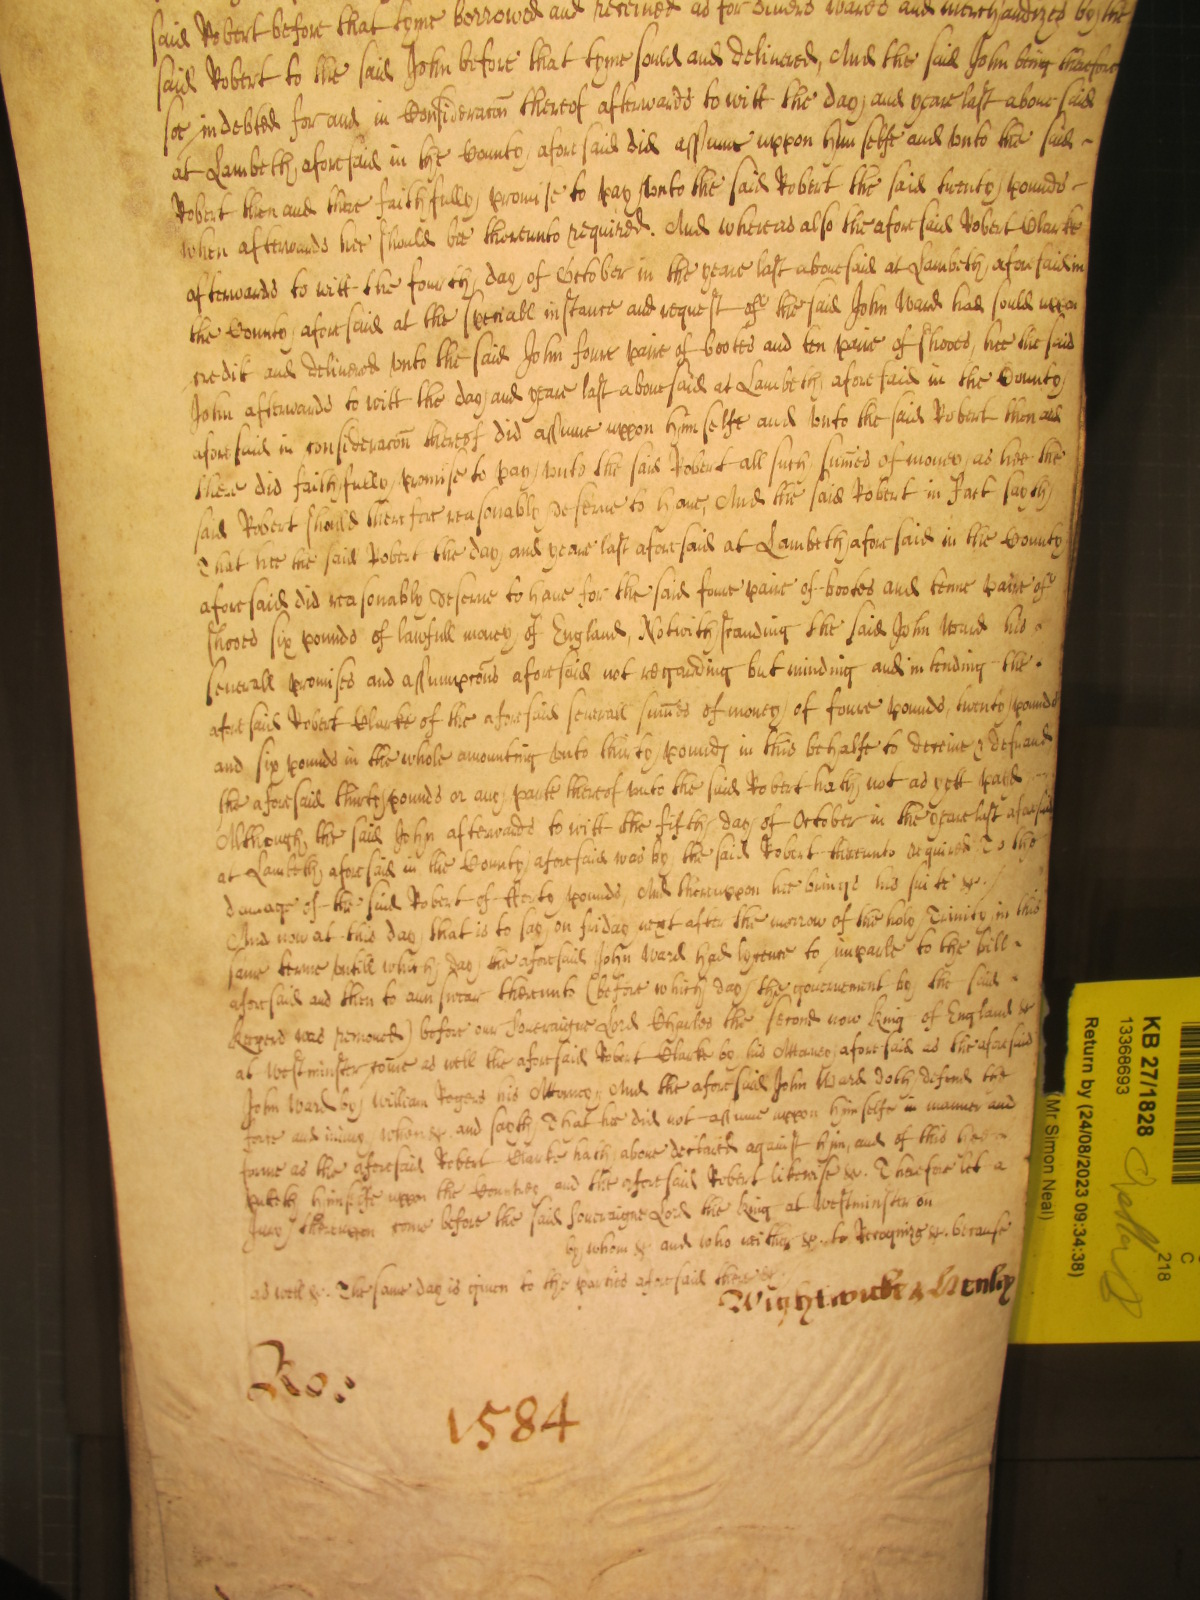 said Robert before that tyme borrowed and received as for divers wares and merchandizes by the
said Robert to the said John before that tyme sould and delivered, And the said John being therefore
soe indebted for and in Consideracōn thereof afterwards to witt the day and yeare last above said
at Lambeth aforesaid in the County aforesaid did assume uppon him selfe and unto the said
Robert then and there faithfully promise to pay unto the said Robert the said twenty pounds
when afterwards hee should bee thereunto required. And whereas also the aforesaid Robert Clarke
afterwards to witt the fourth day of October in the yeare last abovesaid at Lambeth aforesaid in
the County aforesaid at the speciall instance and request of the said John Ward had sould uppon
credit and delivered unto the said John foure paire of bootes and ten paire of shooes, hee the said
John afterwards to witt the day and yeare last abovesaid at Lambeth aforesaid in the County
aforesaid in consideracōn thereof did assume uppon him selfe and unto the said Robert then and
there did faithfully promise to pay unto the said Robert all such sum̄es of money as hee the
said Robert should therefore reasonably deserve to have, And the said Robert in Fact sayth
That hee the said Robert the day and yeare last aforesaid at Lambeth aforesaid in the County
aforesaid did reasonably deserve to have for the said foure paire of bootes and tenne paire of
shooes six pounds of lawfull money of England, Notwithstanding the said John Ward his
severall promises and assumpcōns aforesaid not regarding but minding and intending the
aforesaid Robert Clarke of the aforesaid severall sum̄es of money of foure pounds, twenty pounds
and six pounds in the whole amounting unto thirty pounds in this behalfe to deceive & defraud
the aforesaid thirty pounds or any parte thereof unto the said Robert hath not as yett payd
Although the said John afterwards to witt the fifth day of October in the yeare last aforesaid
at Lambeth aforesaid in the County aforesaid was by the said Robert thereunto required To the
damage of the said Robert of fforty pounds, And thereuppon hee brings his suite &c.
And now at this day that is to say on friday next after the morrow of the holy Trinity in this
same terme untill which day the aforesaid John Ward had lycence to imparle to the bill
aforesaid and then to aunswear thereunto (before which day the government by the said
Keepers was removed) before our soveraigne Lord Charles the second now King of England &c
at Westminster come as well the aforesaid Robert Clarke by his Attorney aforesaid as the aforesaid
John Ward by William Rogers his Attorney, And the aforesaid John Ward doth defend the
force and iniury when &c. and sayth That hee did not assume uppon himselfe in manner and
forme as the aforesaid Robert Clarke hath above declared against him, and of this hee
putteth himselfe uppon the Countrey and the aforesaid Robert likewise &c. Therefore let a
Jury thereuppon come before the said soveraigne Lord the King at Westminster on
by whom &c and who neither &c. to Recognize &c. because
as well &c. The same day is given to the parties aforesaid there &c
Wightwicke & Henley
Ro:
1584
KB 27/1828
13368693
Return by (24/08/2023 09:34:38)
(Mr Simon Neal)
218
C